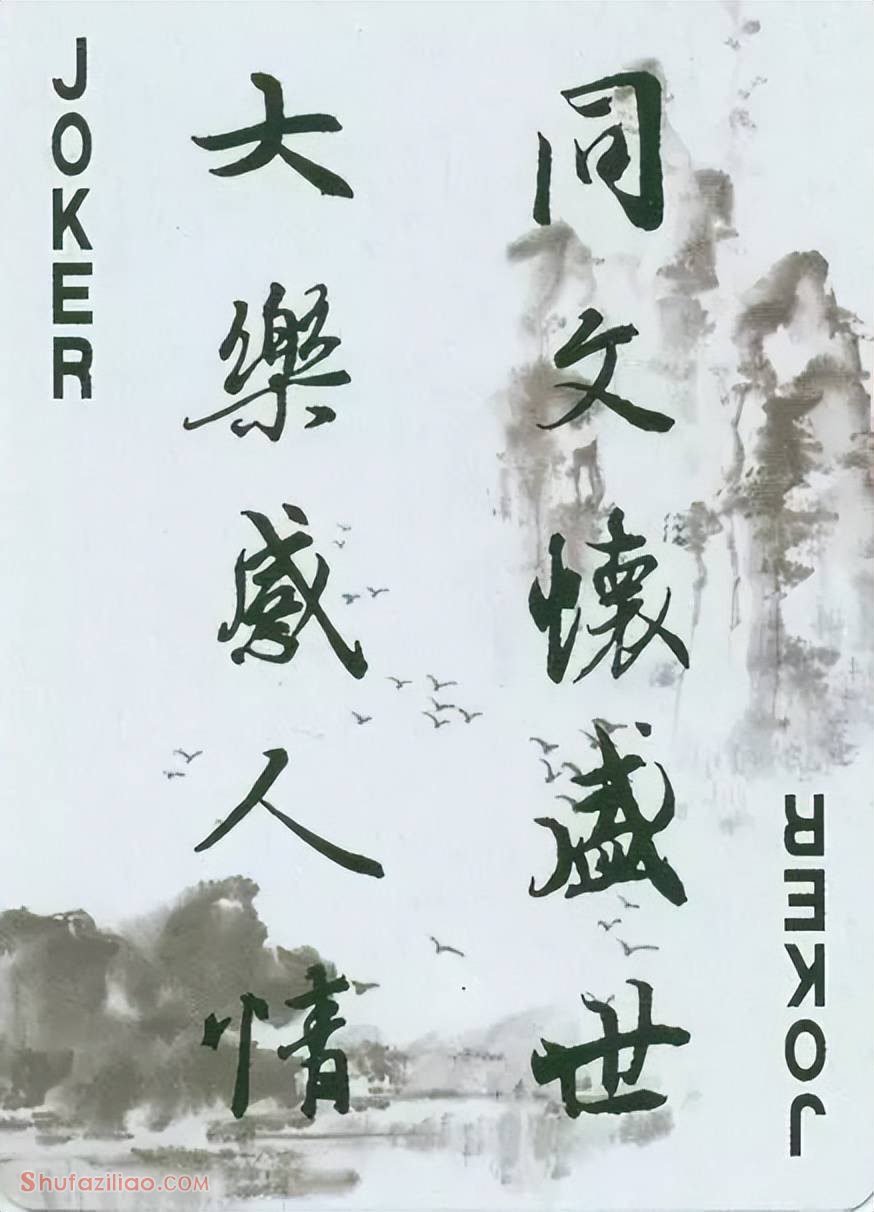 JOKER
同文懷盛世
大樂感人情
JOKER
Shufaziliao.COM